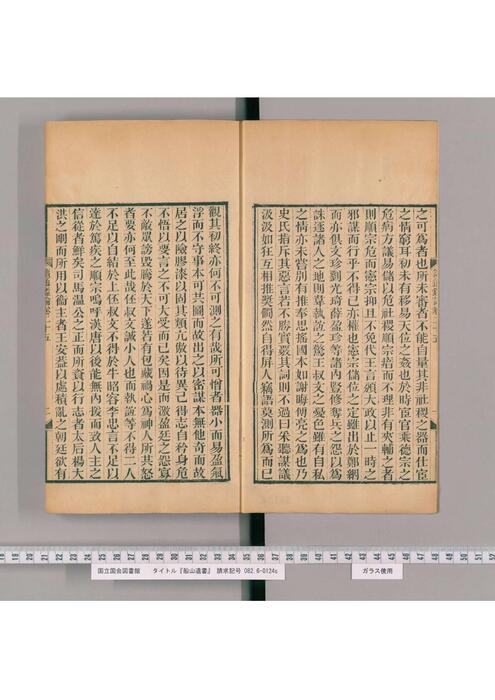 之可爲者也所未審者不能自量其非社稷之器而仕宦
之情窮耳初未有移易天位之姦也於時宦官乘德宗之
危病方議易儲以危社稷順宗瘖而不理非有夾輔之者
則順宗危而憲宗抑且不免代王言頒大政以止一時之
邪謀而行乎不得已亦權也憲宗儲位之定雖出於鄭絪
而亦俱文珍劉光琦薛盈珍等諸內豎修奪兵之怨以爲
誅逐諸人之地則韋執誼之驚王叔文之憂色雖有自私
之情亦未嘗別有推奉思搖國本如謝晦傅亮之爲也乃
史氏指斥其惡言若不勝實覈其詞則不過曰采聽謀議
汲汲如狂互相推奬僩然自得屏人竊語莫測所爲而已
觀其初終亦何不可測之有哉所可憎者器小而易盈氣
浮而不守事本可共圖而故出之以密謀本無他奇而故
居之以險膠漆以固其類亢傲以待異己得志自矜身危
不悟以要言之不可大受而已矣因是而激盈廷之怨寡
不敵衆謗毀騰於天下遂若有包藏禍心爲神人所共怒
者要亦何至此哉伾叔文誠小人也而執誼等不得二人
不足以自結於上伾叔文不得於牛昭容李忠言不足以
達於篤疾之順宗嗚呼漢唐以後能無內援而致人主之
信從者鮮矣司馬溫公之正而所資以行志者太后楊大
洪之剛而所用以衞主者王安葢以處積亂之朝廷欲有
国立国会図書館　タイトル『船山遺書』　請求記号 082.6-0124s
ガラス使用